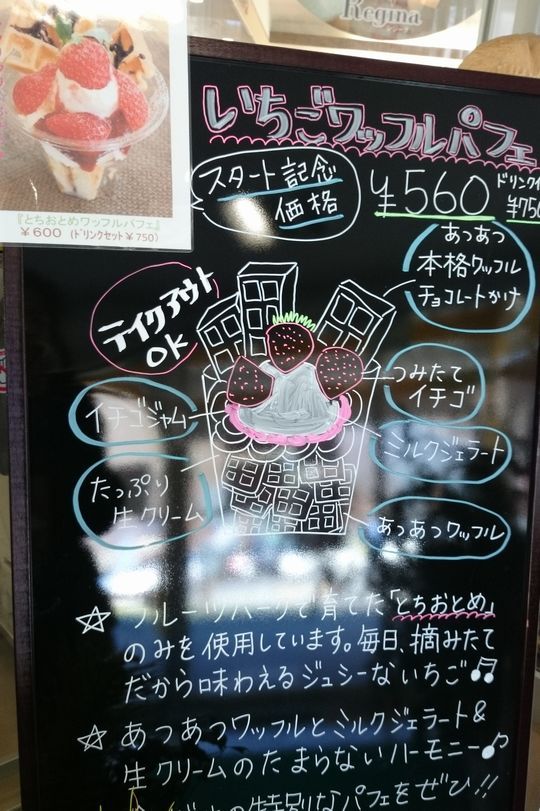 Regina
いちごワッフルパフェ
スタート記念
価格
¥560
『とちおとめワッフルパフェ』
¥600 (ドリンクセット¥750)
テイクアウト
OK
あつあつ
本格ワッフル
チョコレートかけ
つみたて
イチゴ
イチゴジャム
ミルクジェラート
たっぷり
生クリーム
あつあつワッフル
☆ フルーツパークで育てた「とちおとめ」
のみを使用しています。毎日、摘みたて
だから味わえるジュシーないちご♫
☆ あつあつワッフルとミルクジェラート&
生クリームのたまらないハーモニー♪
の特別なパフェをぜひ!!